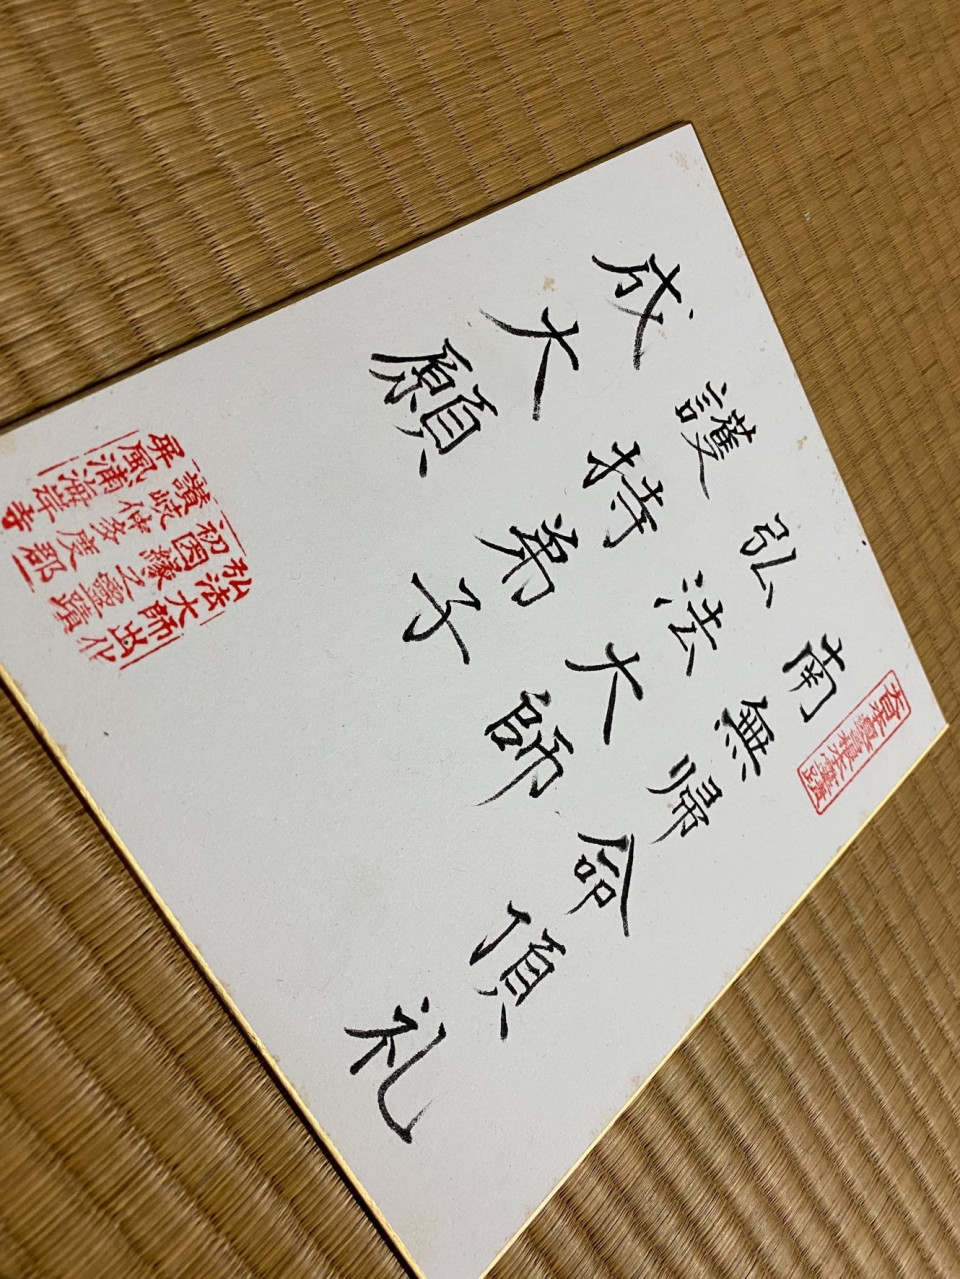 南無帰命頂礼
弘法大師
護持弟子
成大願
弘法大師出化
初因縁之靈蹟
讃岐仲多度郡
屏風浦海岸寺